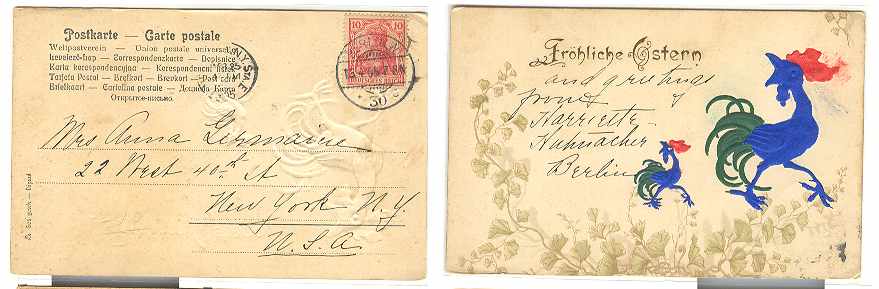 Postkarte — Carte postale
Weltpostverein — Union postale universelle
Levelező-lap — Korrespondenzkarte — Dopisnice
Karta korespondencyjna — Korespondenční lístek
Tarjeta Postal — Brefkort — Brevkort — Post card
Briefkaart — Cartolina postale — Дописна Карта
Открытое письмо.
10 10
30
Mrs Anna Germaine
22 West 40th St
New York N.Y.
U.S.A.
Fröhliche Ostern
and greetings
from
Harriette
Berlin